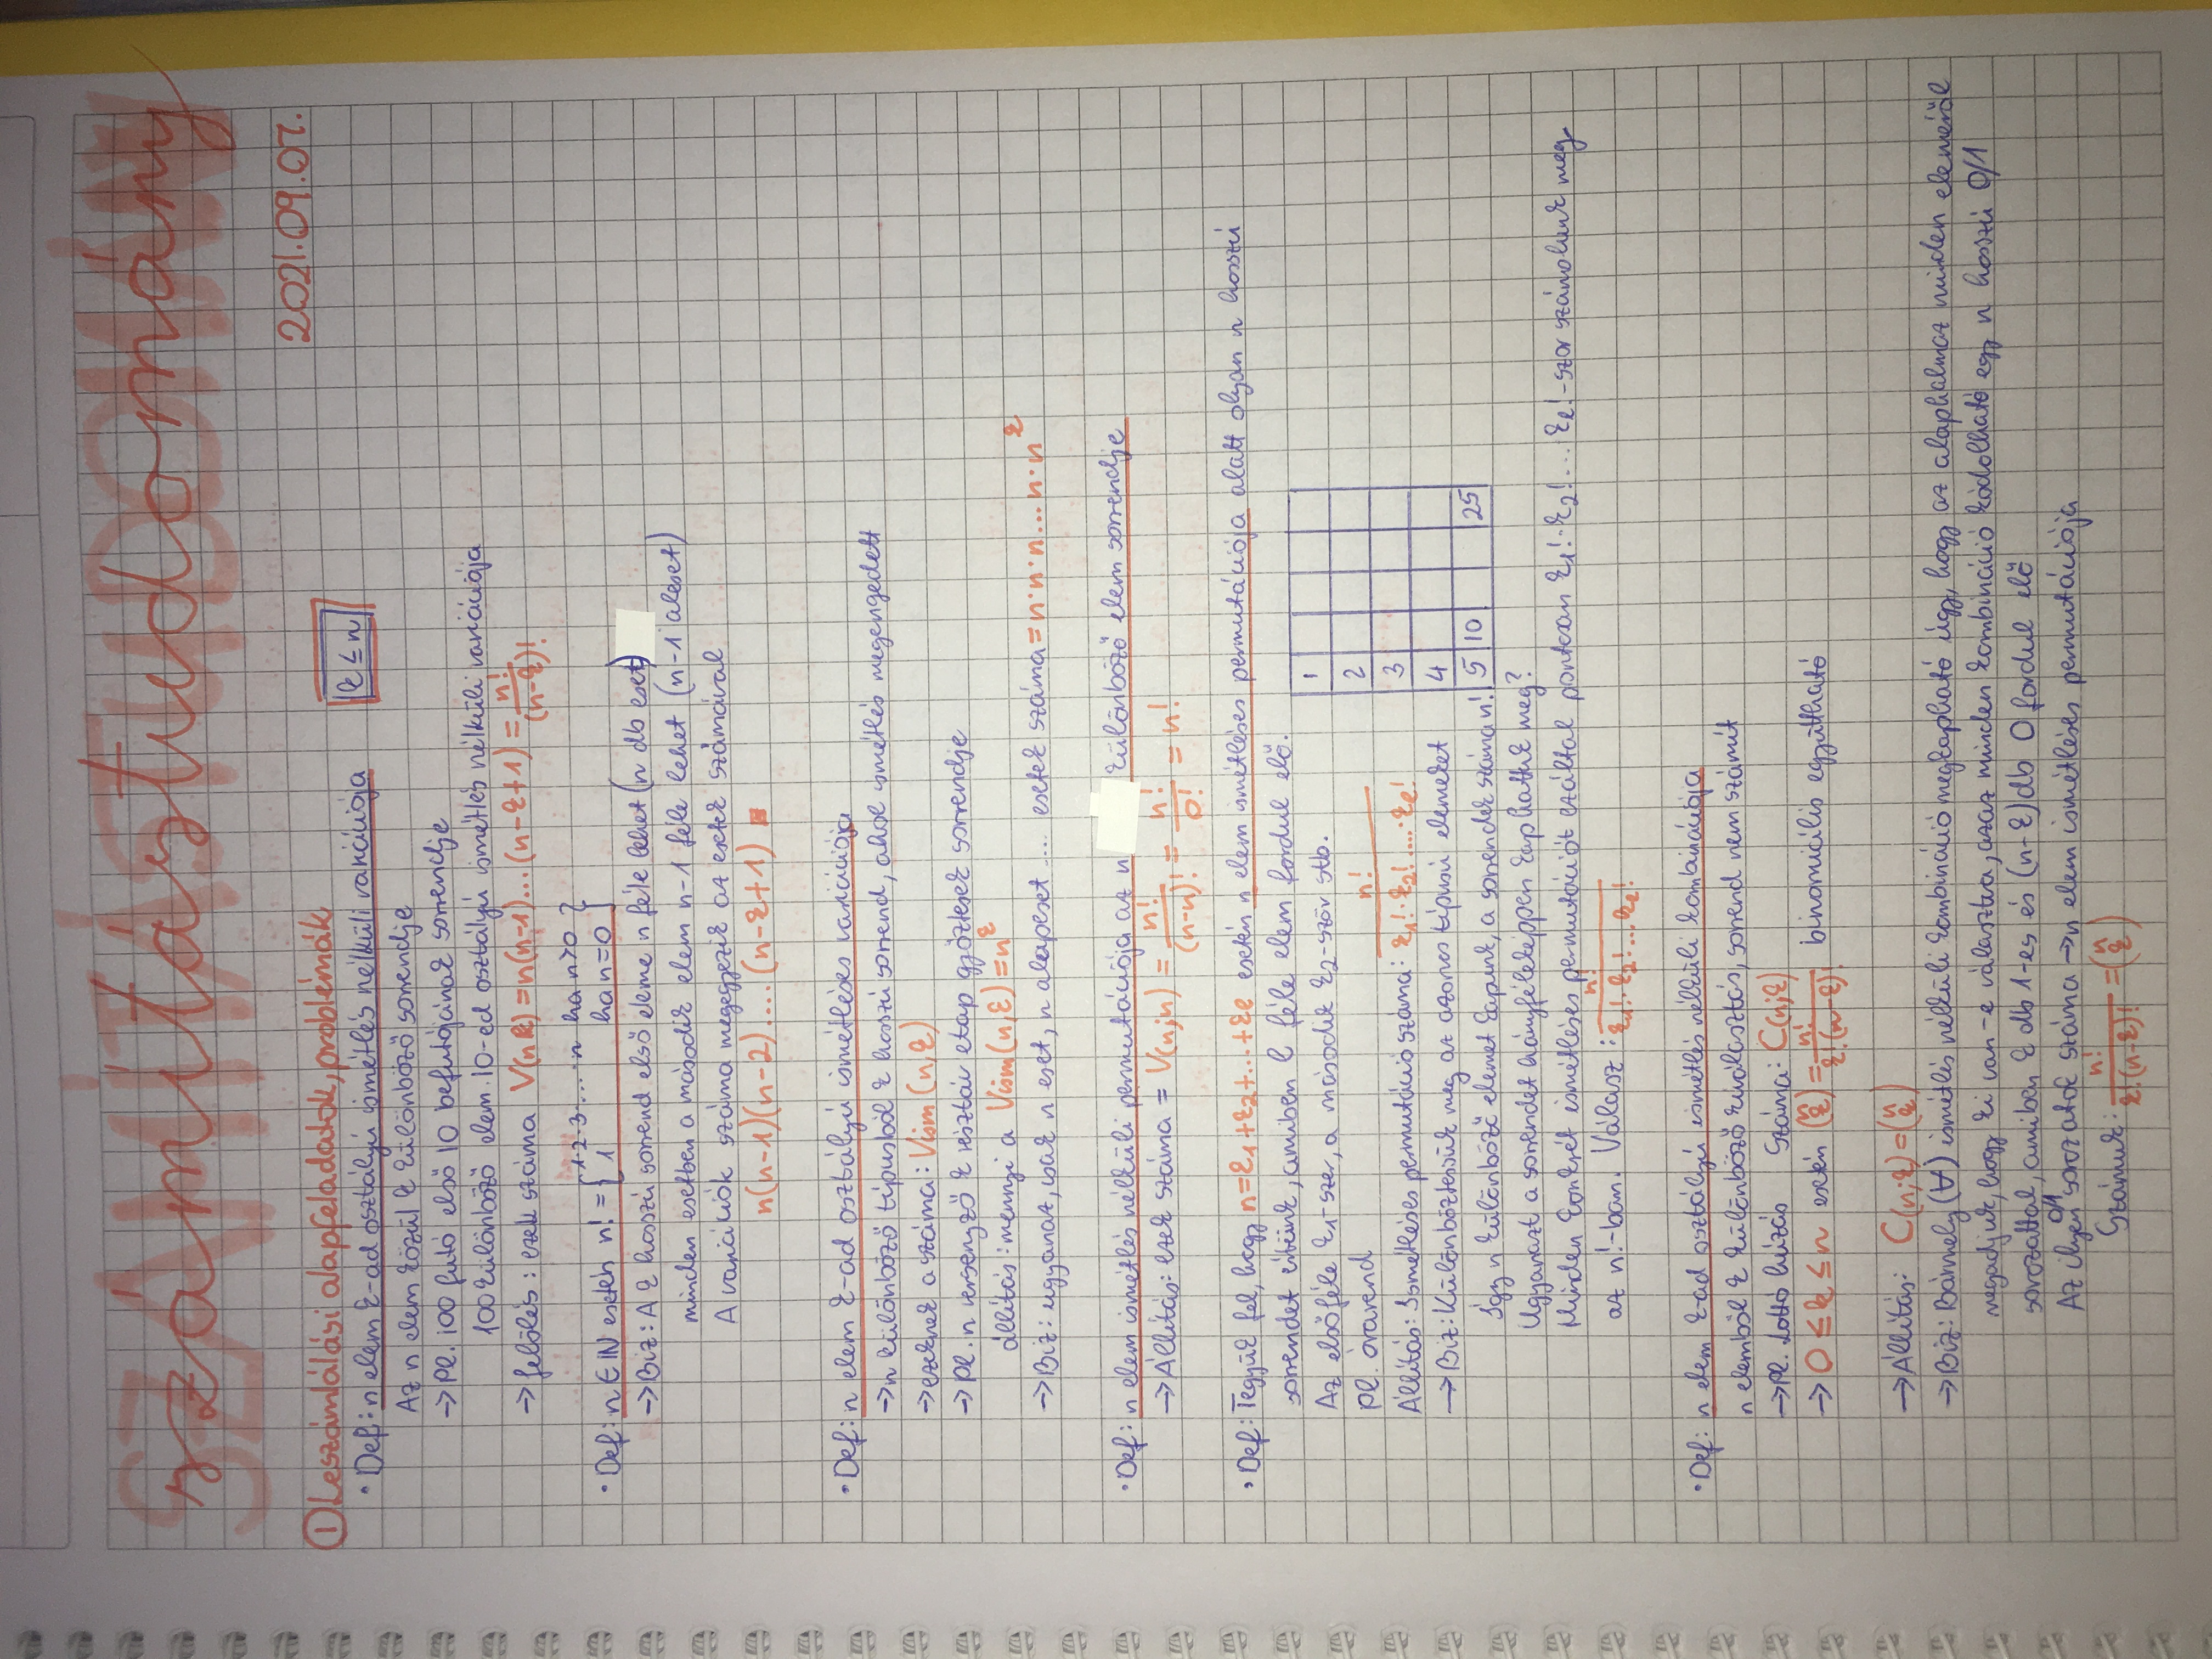 SZÁMÍTÁSTUDOMÁNY
számítástudomány
2021.09.07.
① Leszámlálási alapfeladatok, problémák
• Def: n elem k-ad osztályú ismétlés nélküli variációja
k ≤ n
Az n elem közül k különböző sorrendje
→ Pl. 100 futó első 10 befutójának sorrendje
100 különböző elem 10-ed osztályú ismétlés nélküli variációja
→ felölés: ezek száma V(n k) = n(n-1)...(n-k+1) = n!/(n-k)!
• Def: n ∈ ℕ esetén n! = { 1·2·3·...·n ha n>0
1 ha n=0 }
→ Biz: A k hosszú sorrend első eleme n féle lehet (n db eset)
minden esetben a második elem n-1 féle lehet (n-1 aleset)
A variációk száma megegyezik az esetek számával
n(n-1)(n-2)....(n-k+1) ■
• Def: n elem k-ad osztályú ismétléses variációja
→ n különböző típusból k hosszú sorrend, ahol ismétlés megengedett
→ ezeknek a száma: Vism (n,k)
→ Pl. n versenyző k résztáv etap győztesek sorrendje
állítás: mennyi a Vism(n,k) = n^k
→ Biz: ugyanaz, csak n eset, n alapeset .... esetek száma = n·n·n...n·n^k
• Def: n elem ismétlés nélküli permutációja az n különböző elem sorrendje
→ Állítás: ezek száma = V(n;n) = n!/(n-n)! = n!/0! = n!
• Def: Tegyük fel, hogy n=k₁+k₂+...+kℓ esetén n elem ismétléses permutációja alatt olyan n hosszú
sorrendet értünk, amiben l féle elem fordul elő.
Az elsőféle k₁-szer, a második k₂-ször stb.
Pl. órarend
Állítás: Ismétléses permutáció száma: n!/(k₁!·k₂!·....·kℓ!)
→ Biz: Különböztessük meg az azonos típusú elemeket
Így n különböző elemet kapunk, a sorrendek száma n!
1
2
3
4
5 10 25
Ugyanazt a sorrendet hányféleképpen kaphattuk meg?
Minden konkrét ismétléses permutációt ezáltal pontosan k₁!·k₂!·...·kℓ!-szor számolunk meg
az n!-ban. Válasz: n!/(k₁!·k₂!...kℓ!)
• Def: n elem k-ad osztályú ismétlés nélküli kombinációja
n elemből k különböző kiválasztás, sorrend nem számít
→ Pl. Lottó húzás Száma: C(n;k)
→ 0 ≤ k ≤ n esetén (n k) = n!/(k!·(n-k)!) binomiális együttható
→ Állítás: C(n;k) = (n k)
→ Biz: Bármely (∀) ismétlés nélküli kombináció megkapható úgy, hogy az alaphalmaz minden eleméről
megadjuk, hogy ki van-e választva, azaz minden kombináció kódolható egy n hosszú 0/1
sorozattal, amiben k db 1-es és (n-k) db 0 fordul elő
Az ilyen 0/1 sorozatok száma → n elem ismétléses permutációja
Számuk: n!/(k!·(n-k)!) = (n k)